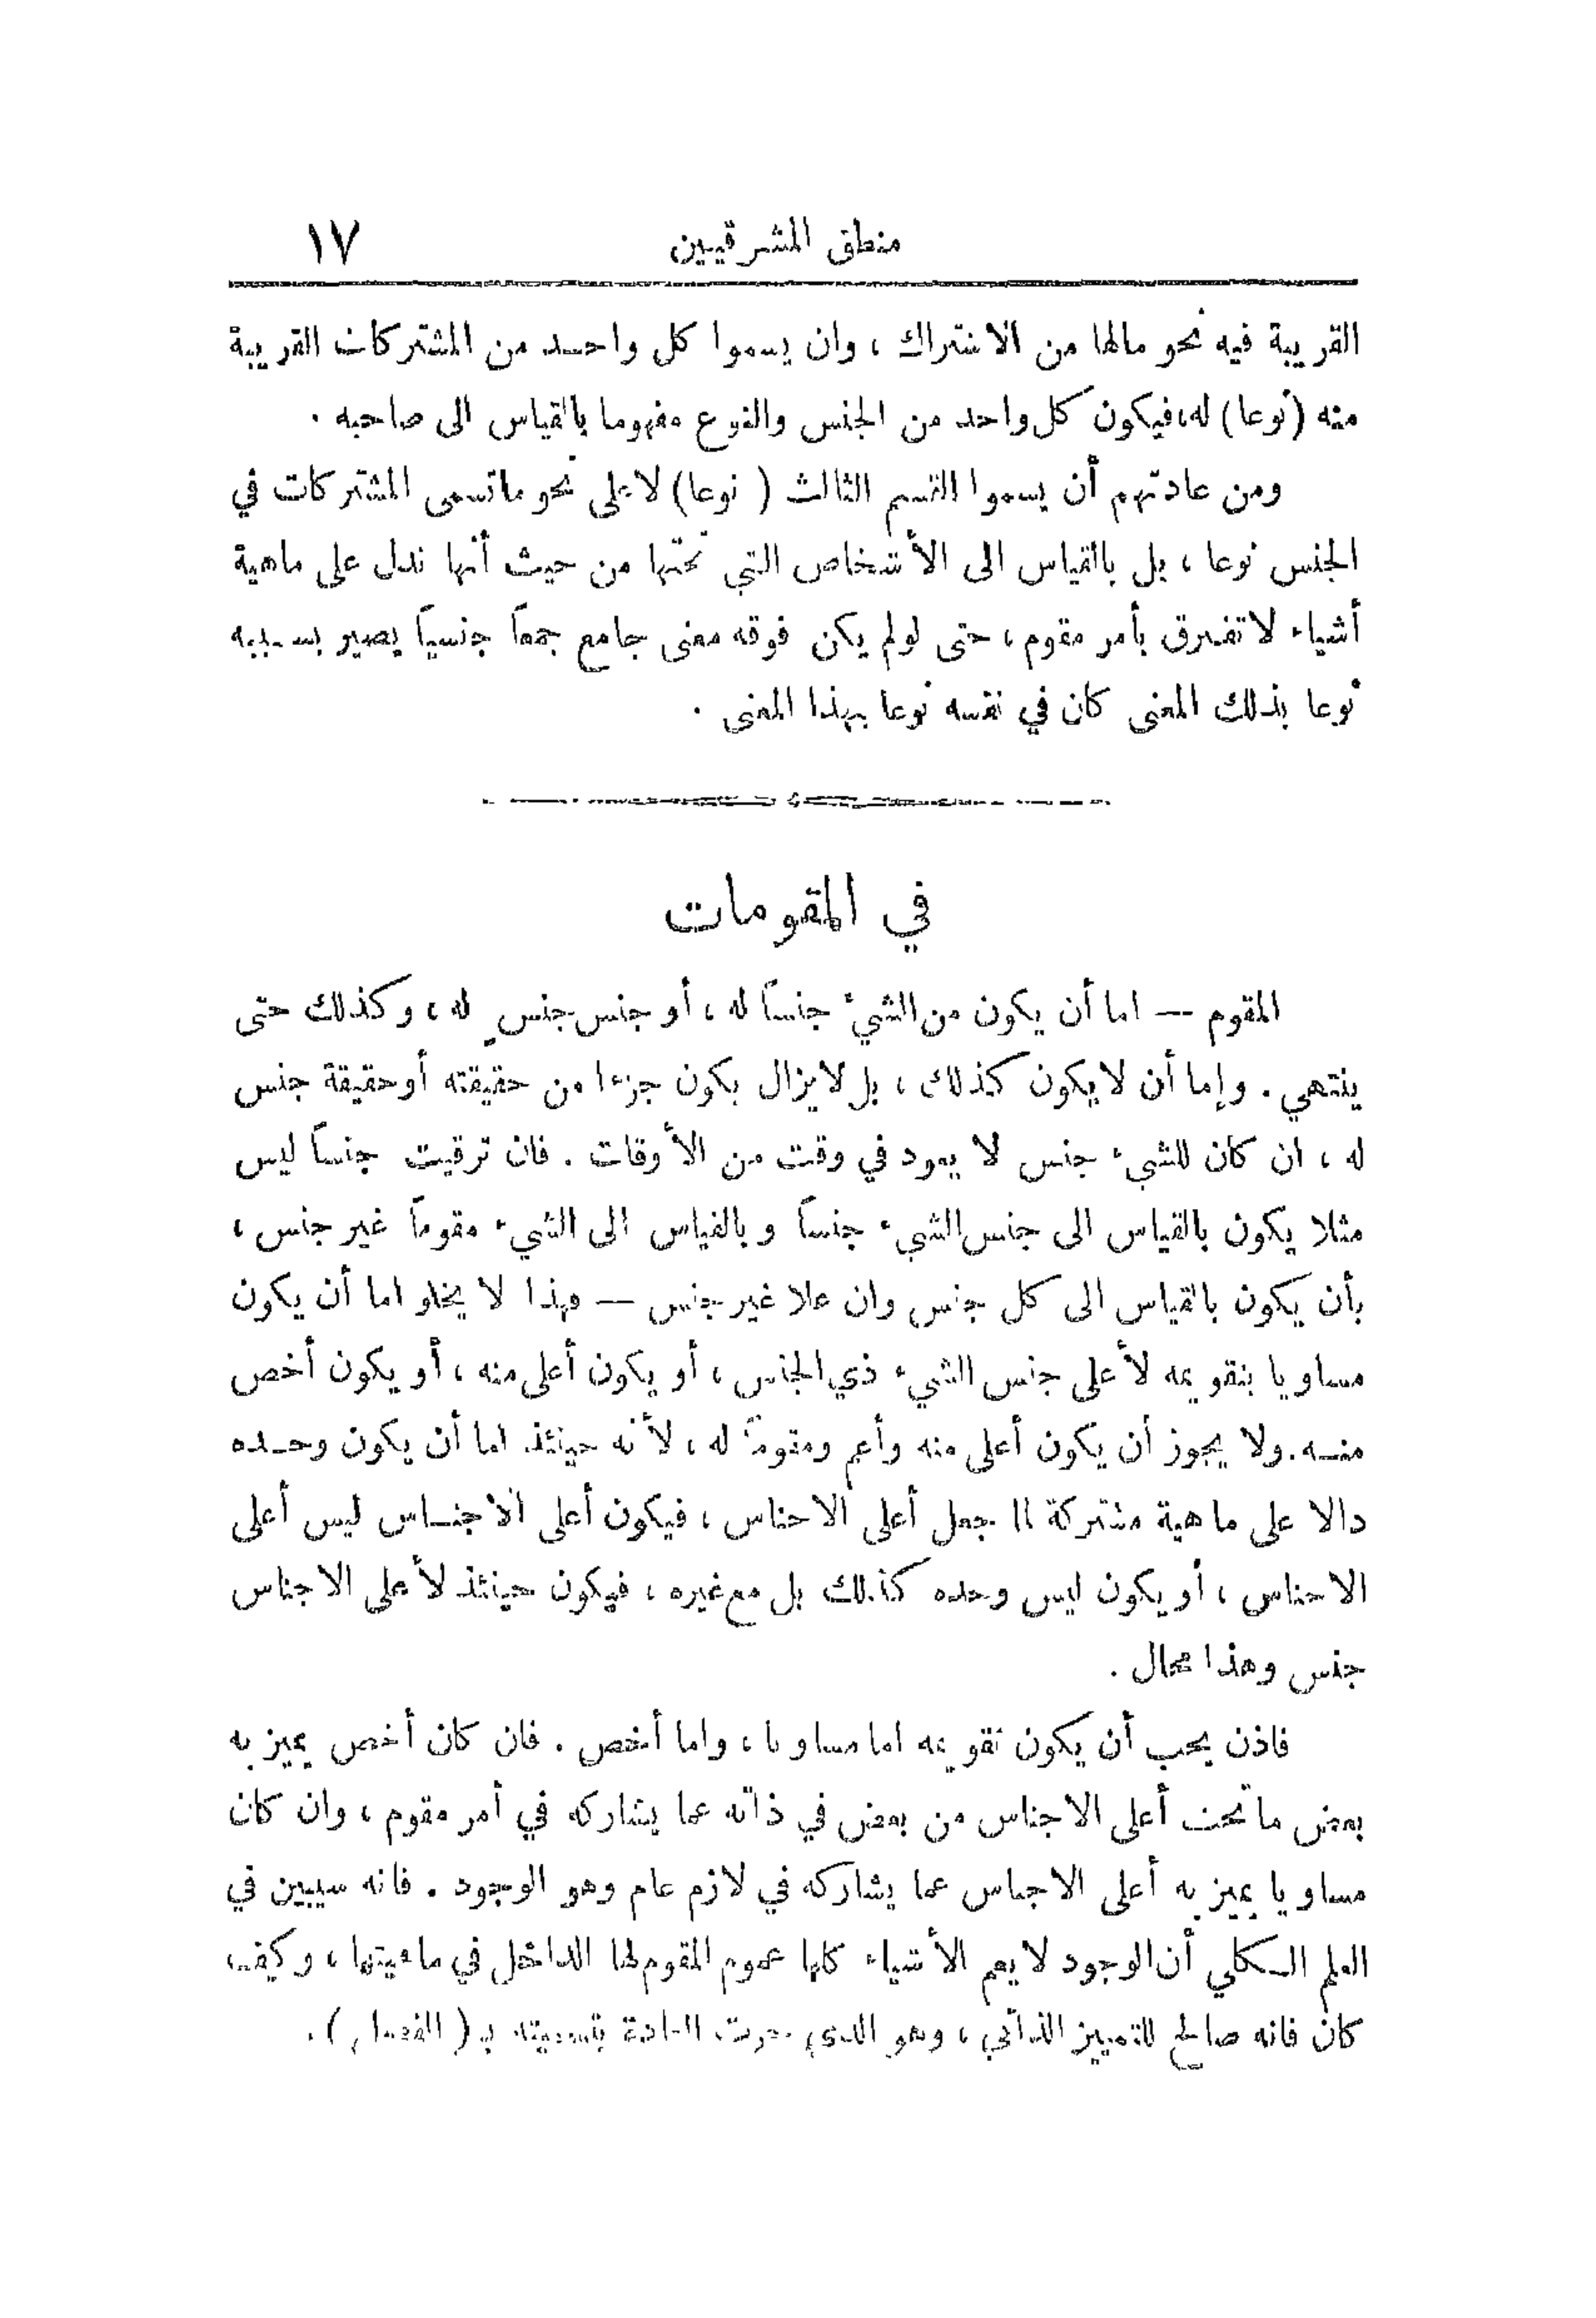 منطق المشرقيين ١٧
القريبة فيه نحو مالها من الاشتراك ، وان يسموا كل واحد من المشتركات القريبة
منه (نوعا) له،فيكون كل واحد من الجنس والنوع مفهوما بالقياس الى صاحبه .
ومن عادتهم أن يسموا القسم الثالث ( نوعا) لا على نحو ماتسمى المشتركات في
الجنس نوعا ، بل بالقياس الى الأشخاص التي تحتها من حيث أنها تدل على ماهية
أشياء لا تفترق بأمر مقوم ، حتى لولم يكن فوقه معنى جامع جمعاً جنسياً يصير بسببه
نوعا بذلك المعنى كان في نفسه نوعا بهذا المعنى .
في المقومات
المقوم — اما أن يكون من الشيء جنساً له ، أو جنس جنسٍ له ، وكذلك حتى
ينتهي . وإما أن لا يكون كذلك ، بل لايزال يكون جزءا من حقيقته أو حقيقة جنس
له ، ان كان للشيء جنس لا يعود في وقت من الأوقات . فان ترقيت جنساً ليس
مثلا يكون بالقياس الى جنس الشيء جنساً وبالقياس الى الشيء مقوماً غير جنس ،
بأن يكون بالقياس الى كل جنس وان علا غير جنس — فهذا لا يخلو اما أن يكون
مساويا بتقويمه لأعلى جنس الشيء ذي الجنس ، أو يكون أعلى منه ، أو يكون أخص
منه . ولا يجوز أن يكون أعلى منه وأعم ومقوماً له ، لأنه حينئذ اما أن يكون وحده
دالا على ماهية مشتركة لما جعل أعلى الاجناس ، فيكون أعلى الاجناس ليس أعلى
الاجناس ، أو يكون ليس وحده كذلك بل مع غيره ، فيكون حينئذ لأعلى الاجناس
جنس وهذا محال .
فاذن يجب أن يكون تقويمه اما مساويا ، واما أخص . فان كان أخص يميز به
بعض ما تحت أعلى الاجناس من بعض في ذاته عما يشاركه في أمر مقوم ، وان كان
مساويا يميز به أعلى الاجناس عما يشاركه في لازم عام وهو الوجود . فانه سيبين في
العلم الكلي أن الوجود لا يعم الأشياء كلها عموم المقوم لها الداخل في ماهيتها ، وكيف
كان فانه صالح للتمييز الذاتي ، وهو الذي جرت العادة بتسميته بـ ( الفصل ) .